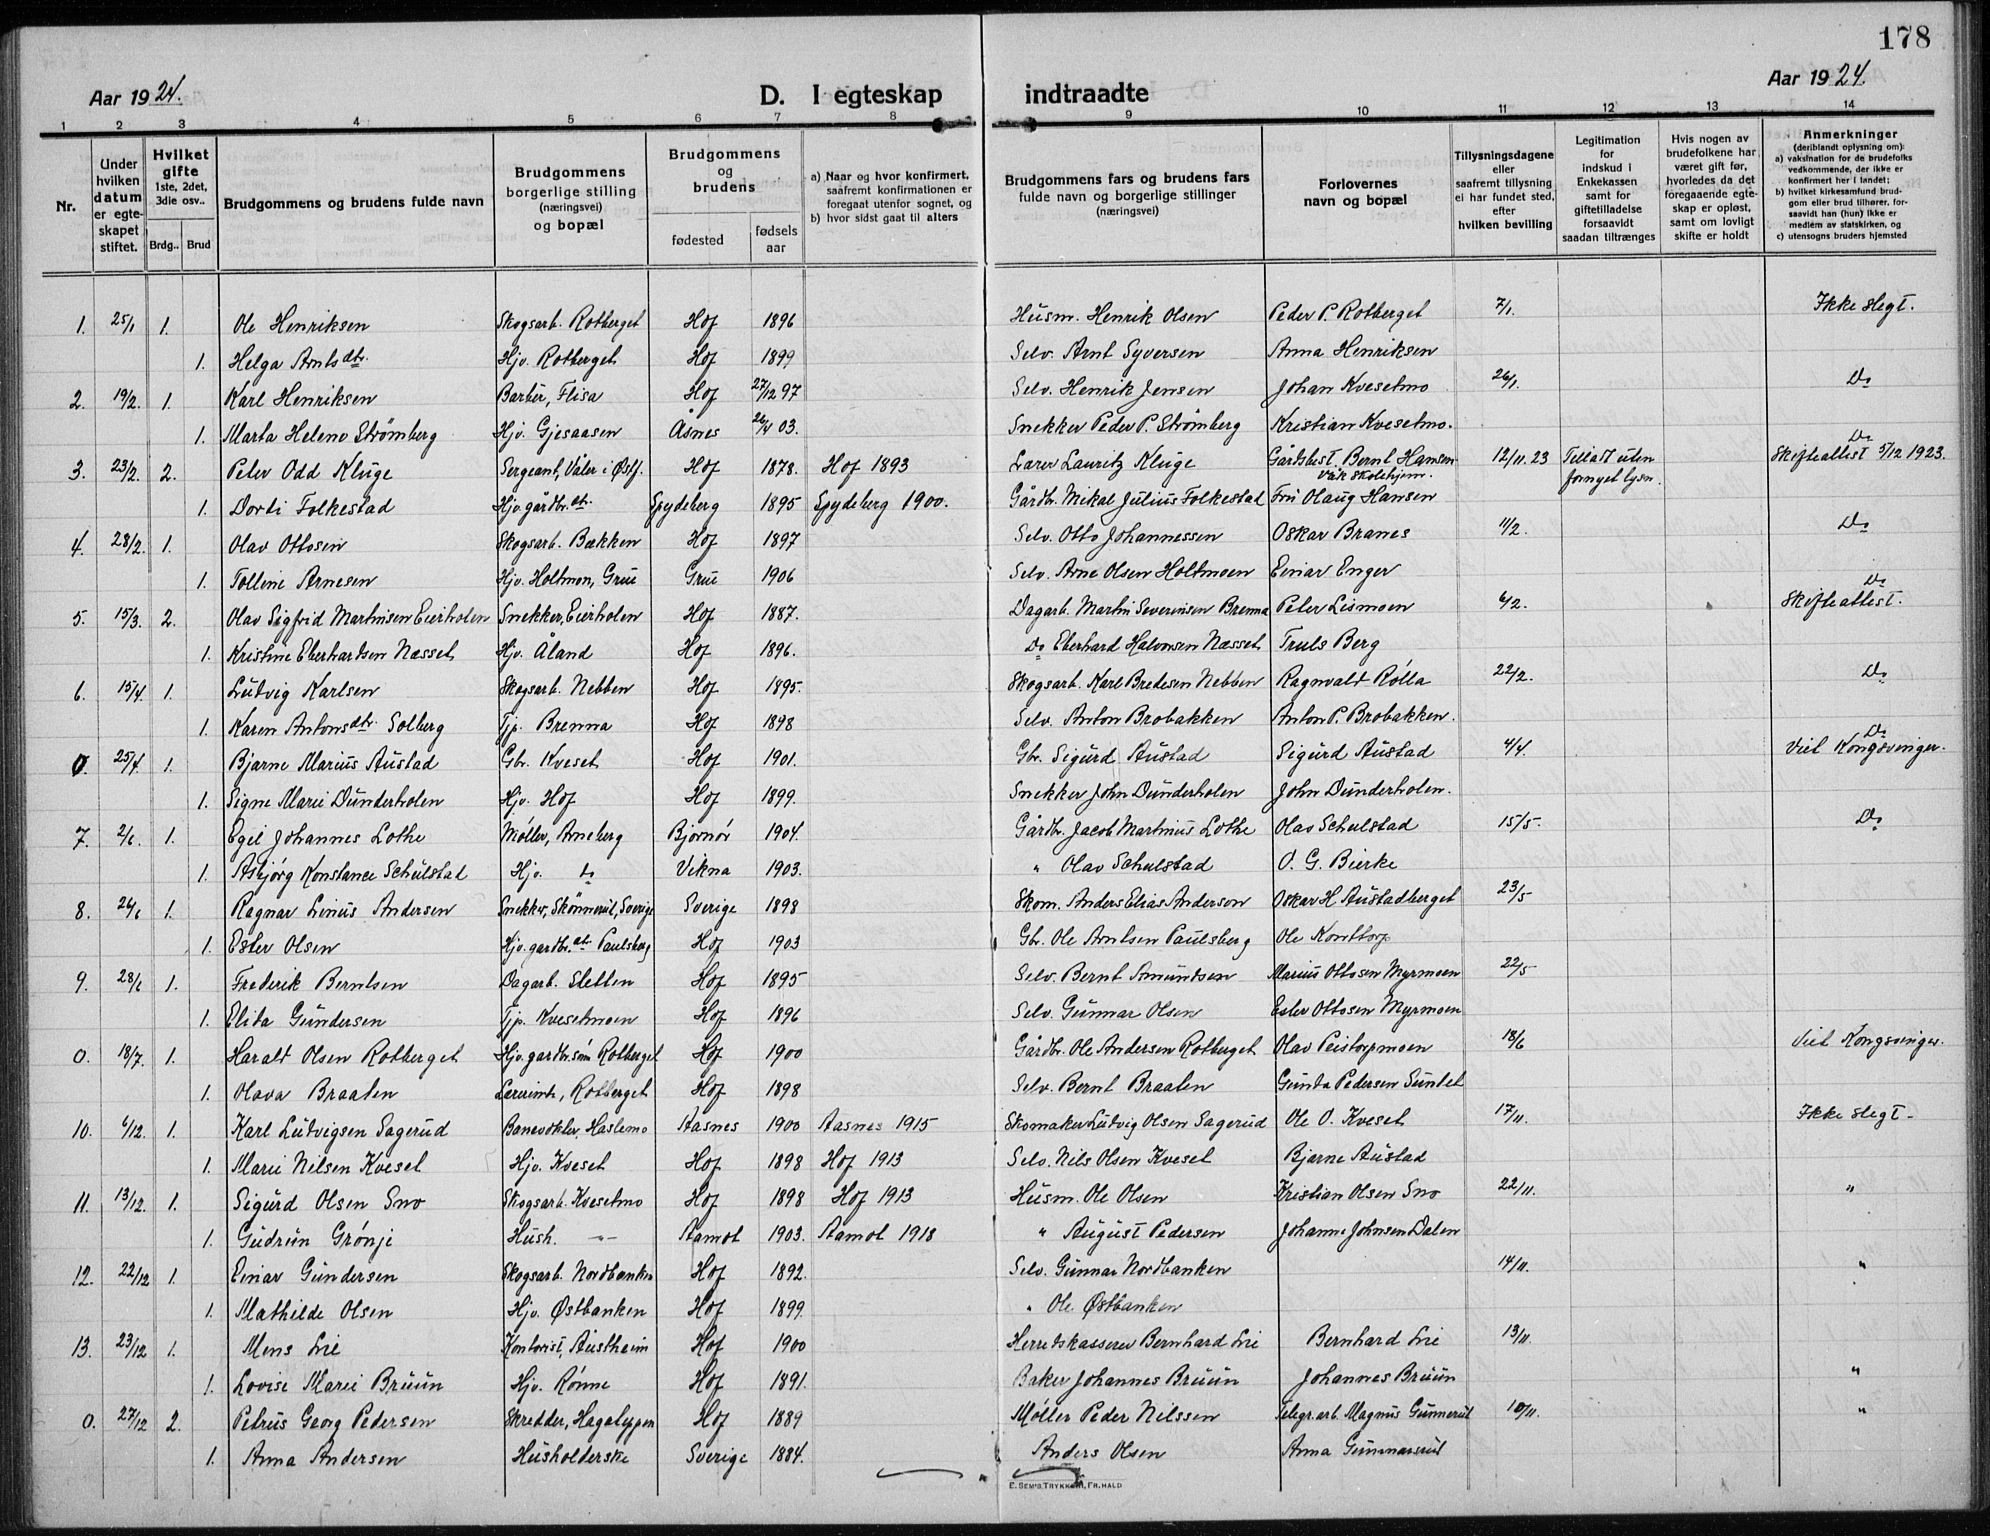 178
Aar 1924.
D. I egteskap indtraadte
Aar 1924.
1 2 3 4 5 6 7 8 9 10 11 12 13 14
Nr.
Under hvilken datum er egte-skapet stiftet.
Hvilket gifte 1ste, 2det, 3die osv..
Brdg.. Brud
Brudgommens og brudens fulde navn
Brudgommens borgerlige stilling (næringsvei) og bopæl
Brudgommens og brudens
fødested
fødsels aar
a) Naar og hvor konfirmert, saafremt konfirmationen er foregaat utenfor sognet, og
b) hvor sidst gaat til alters
Brudgommens fars og brudens fars fulde navn og borgerlige stillinger (næringsvei)
Forlovernes navn og bopæl
Tillysningsdagene eller saafremt tillysning ei har fundet sted, efter hvilken bevilling
Legitimation for indskud i Enkekassen samt for giftetilladelse forsaavidt saadan tiltrænges
Hvis nogen av brudefolkene har været gift før, hvorledes da det foregaaende egte-skap er opløst, samt om lovligt skifte er holdt
Anmerkninger (deriblandt oplysning om):
a) vaksination for de brudefolks vedkommende, der ikke er konfirmert her i landet;
b) hvilket kirkesamfund brud-gom eller brud tilhører, for-saavidt han (hun) ikke er medlem av statskirken, og
c) utensogns bruders hjemsted
1. 25/1 1. Ole Henriksen Skogsarb. Rotberget Hof 1896 Husm. Henrik Olsen Peder P. Rotberget 7/1. Ikke slegt.
1. Helga Arntsdtr. Hjv. Rotberget Hof 1899 Selv. Arnt Syversen Anna Henriksen
2. 19/2. 1. Karl Henriksen Barber, Flisa Hof 27/12 97 Selv. Henrik Jensen Johan Kvesetmo 26/1. Do
1. Marta Helene Strømberg Hjv. Gjesaasen Åsnes 26/4 03. Snekker Peder P. Strømberg Kristian Kvesetmo.
3. 23/2. 2. Peter Odd Kluge Sergeant, Våler i Østf. Hof 1878. Hof 1893 Lærer Lauritz Kluge Gårdbest. Bernt Hansen Våk Skolehjem. 12/11. 23 Tillatt uten fornyet lysn. Do Skifteattest 5/12 1923.
1. Dorti Folkestad Hjv. gårdbr.dt. Spydeberg 1895 Spydeberg 1900. Gårdbr. Mikal Julius Folkestad Fru Olaug Hansen
4. 28/2. 1. Olav Ottosen Skogsarb. Bækken Hof 1897 Selv. Otto Johannessen Oskar Branes 11/2. Do
1. Tolline Arnesen Hjv. Holtmon, Grue Grue 1906 Selv. Arne Olsen Holtmoen Einar Enger
5. 15/3. 2. Olav Sigfrid Martinsen Eierholen Snekker, Eierholen Hof 1887. Dagarb. Martin Severinsen Brenna Peter Lismoen 6/2. Do Skifteattest.
1. Kristine Eberhardsen Næsset Hjv. Åland Hof 1896. Do Eberhard Halvorsen Næsset Truls Berg
6. 15/4. 1. Ludvig Karlsen Skogsarb. Nebben Hof 1895. Skogsarb. Karl Bredesen Nebben Ragnvald Rölla 22/2. Do
1. Karen Antonsdtr. Solberg Tjp. Brenna Hof 1898 Selv. Anton Brobakken Anton P. Brobakken.
0. 25/4. 1. Bjarne Marius Austad Gbr. Kveset Hof 1901. Gbr. Sigurd Austad Sigurd Austad 4/4. Do Viet Kongsvinger.
1. Signe Marie Dunderholen Hjv. Hof Hof 1899. Snekker John Dunderholen John Dunderholen.
7. 2/6. 1. Egil Johannes Lothe Møller, Arneberg Bjørnør 1904. Gårdbr. Jacob Martinus Lothe Olav Schulstad 15/5. Do
1. Asbjørg Konstance Schulstad Hjv. do Vikna 1903. " Olav Schulstad O. G. Bierke
8. 24/6 1. Ragnar Linus Andersen Snekker, Skönnerud, Sverige Sverige 1898 Skom. Anders Elias Anderson Oskar H. Austadberget 23/5
1. Ester Olsen Hjv. gardbr.dt. Paulsberg Hof 1903 Gbr. Ole Arntsen Paulsberg Ole Konttorp
9. 28/6 1. Frederik Berntsen Dagarb. Sletten Hof 1895 Selv. Bernt Amundsen Marius Ottosen Myrmoen 22/5
1. Elida Gundersen Tjp. Kvesetmoen Hof 1896 Selv. Gunnar Olsen Ester Ottosen Myrmoen
0. 18/7. 1. Harald Olsen Rotberget Hjv. gardbr.søn Rotberget Hof 1900 Gårdbr. Ole Andersen Rotberget Olav Peistorpmoen 18/6 Viet Kongsvinger.
1. Olava Braaten Lærerinde, Rotberget Hof 1898 Selv. Bernt Braaten Gunda Pedersen Sundet
10. 6/12. 1. Karl Ludvigsen Sagerud Banevokter, Haslemo Aasnes 1900 Aasnes 1915 Skomaker Ludvig Olsen Sagerud Ole O. Kveset 17/11. Ikke slegt.
1. Marie Nilsen Kveset Hjv. Kveset Hof 1898 Hof 1913 Selv. Nils Olsen Kveset Bjarne Austad
11. 13/12. 1. Sigurd Olsen Sno Skogsarb. Kvesetmo Hof 1898 Hof 1913 Husm. Ole Olsen Kristian Olsen Sno 22/11. "
1. Gudrun Grønje Hush. -"- Aamot 1903. Aamot 1918 " August Pedersen Johanne Johnsen Dalen
12. 22/12 1. Einar Gundersen Skogsarb. Nordbanken Hof 1892. Selv. Gunnar Nordbanken 14/11. "
1. Mathilde Olsen Hjv. Østbanken Hof 1899. " Ole Østbanken
13. 23/12 1. Mons Lie Kontorist, Austheim Hof 1900 Herredskasserer Bernhard Lie Bernhard Lie 13/11.
1. Lovise Marie Bruun Hjv. Rønne Hof 1891. Baker Johannes Bruun Johannes Bruun "
0. 27/12 2. Petrus Georg Pedersen Skredder, Hagalyppen Hof 1889 Møller Peder Nilssen Telegr.arb. Magnus Gunnerud 10/11. "
1. Anna Andersen Husholderske Sverige 1884. Anders Olsen Anna Gunnarsrud
E. SEM'S TRYKKERI, FR.HALD